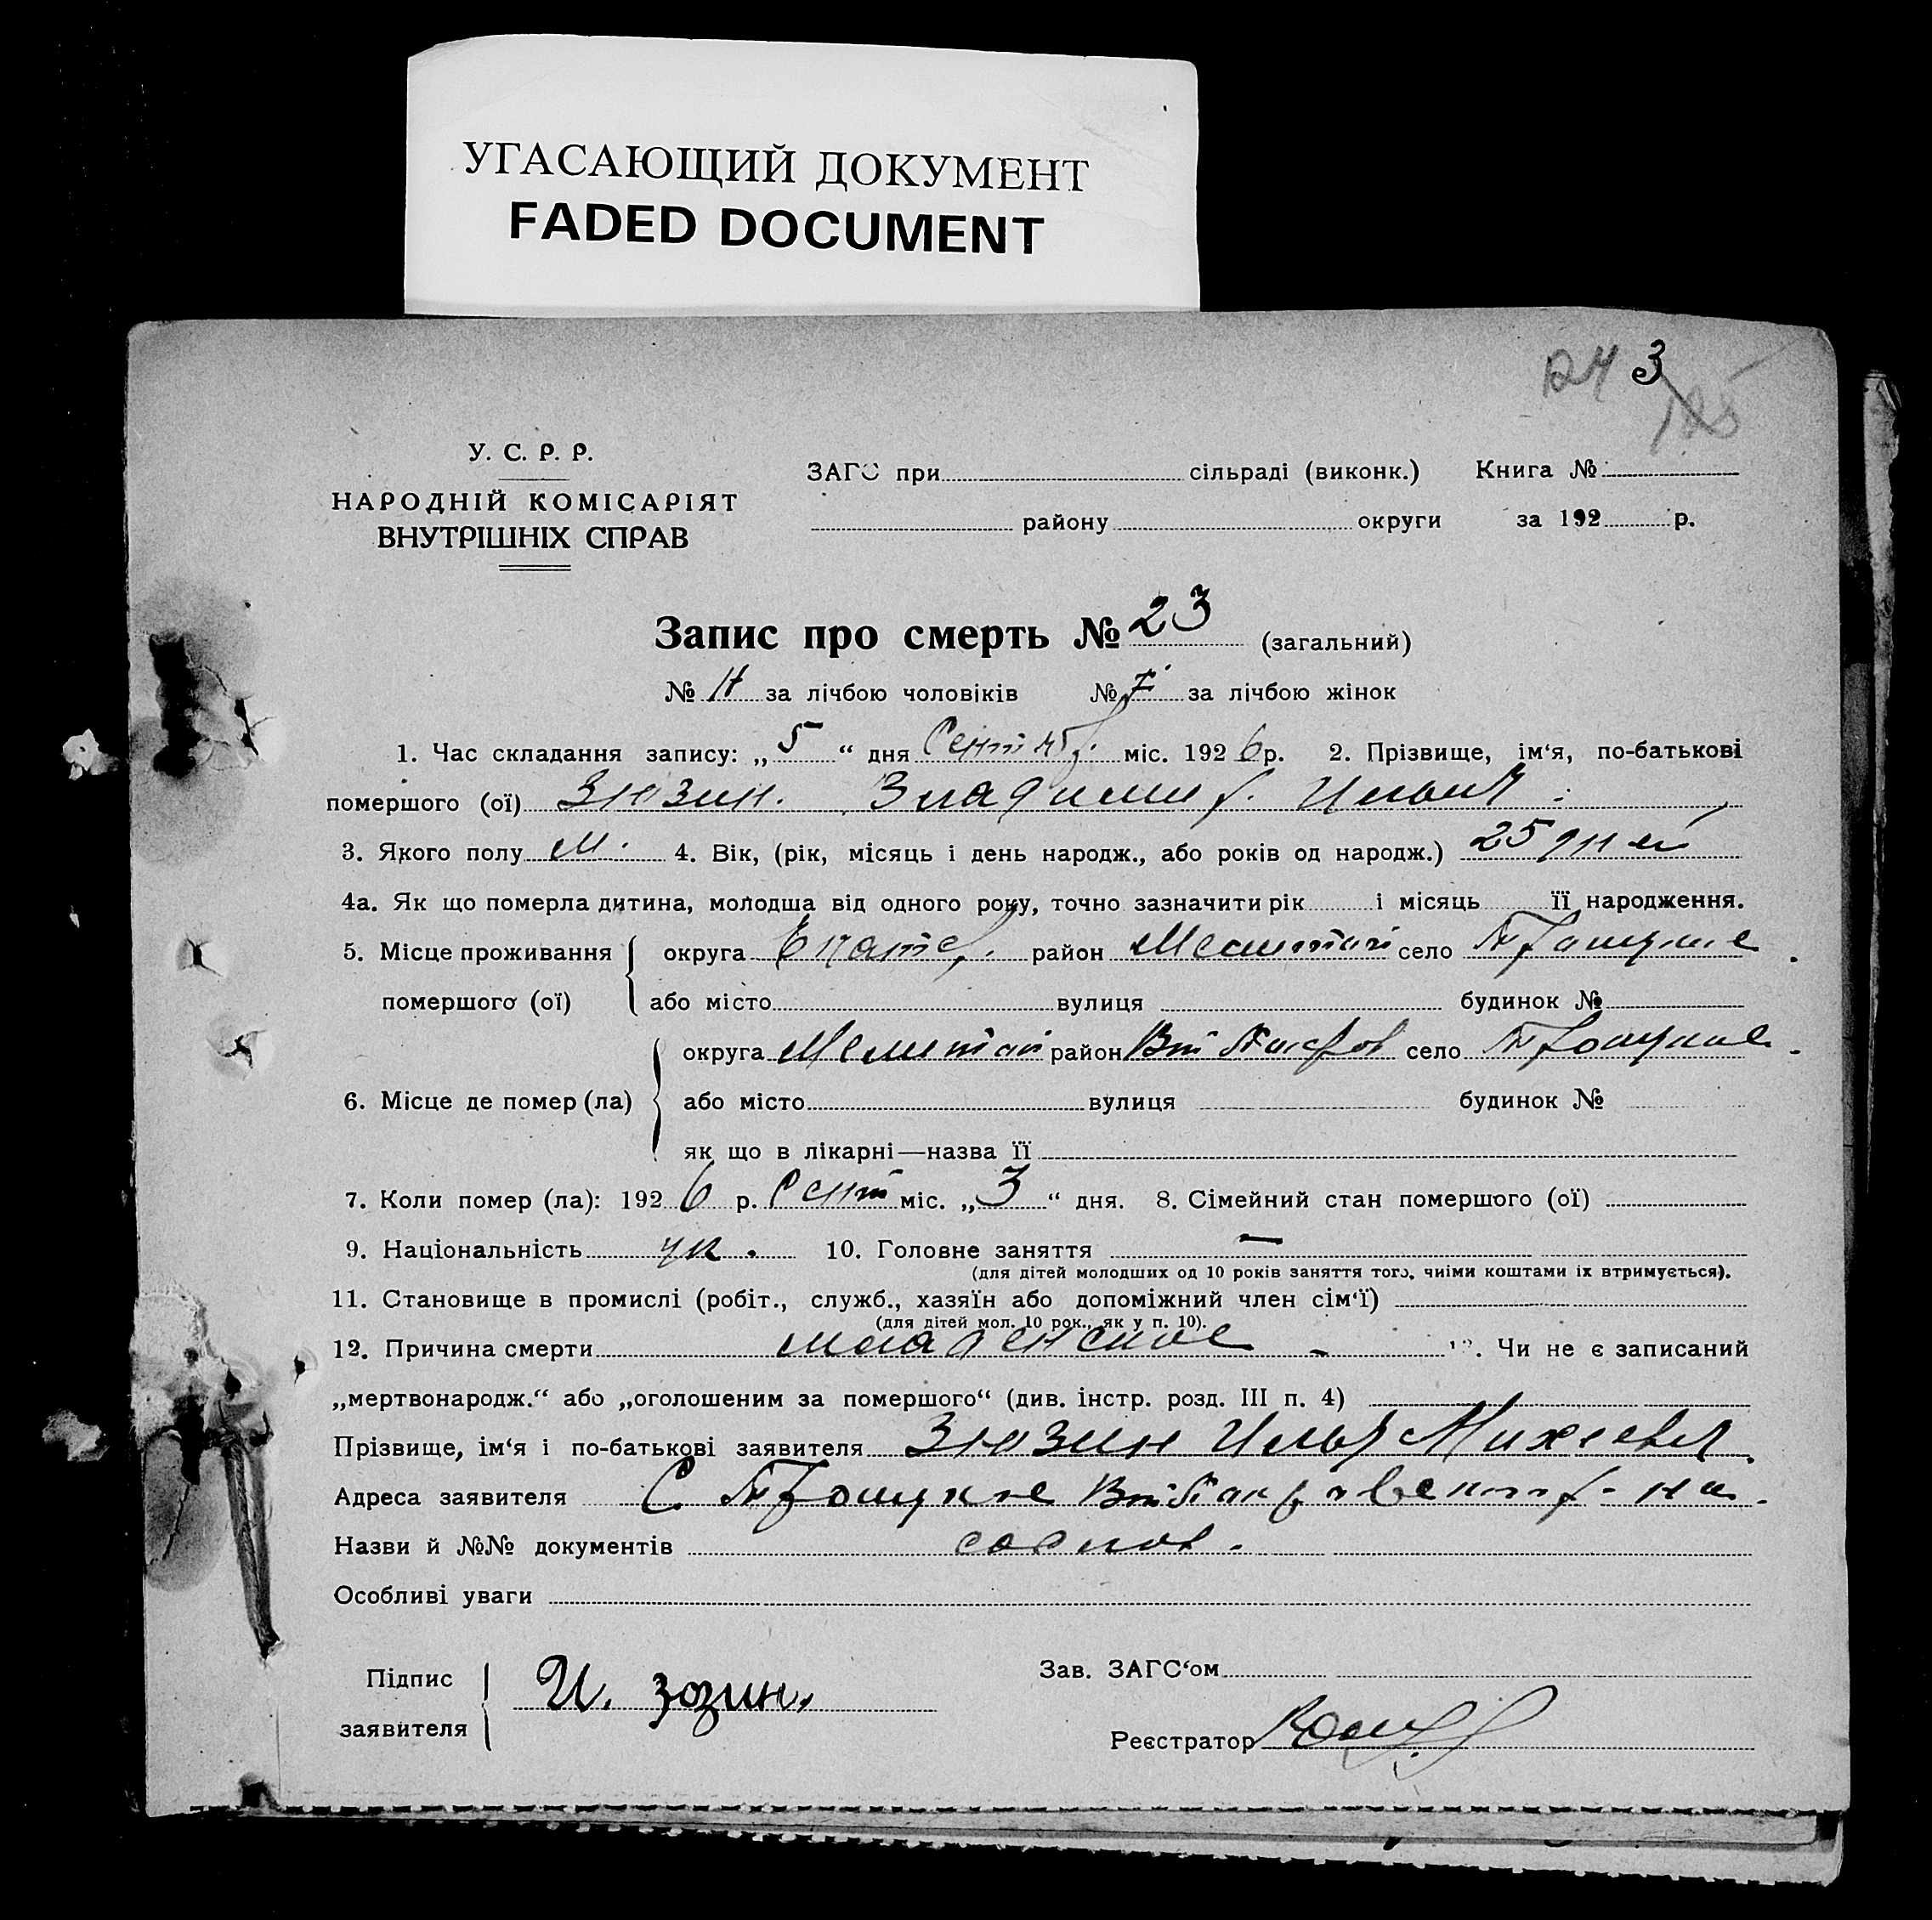 УГАСАЮЩИЙ ДОКУМЕНТ
FADED DOCUMENT
3
124
125
У. С. Р. Р.
НАРОДНІЙ КОМІСАРІЯТ
ВНУТРІШНІХ СПРАВ
ЗАГС при сільраді (виконк.) Книга №
району округи за 192 р.
Запис про смерть № 23 (загальний)
№ за лічбою чоловіків № за лічбою жінок
1. Час складання запису: „5“ дня Сентябр. міс. 1926 р. 2. Прізвище, ім‘я, по-батькові
помершого (ої) Зюзин. Владимир. Ильич
3. Якого полу м. 4. Вік, (рік, місяць і день народж., або років од народж.) 25 дней
4а. Як що померла дитина, молодша від одного року, точно зазначити рік і місяць її народження.
5. Місце проживання округа район село
помершого (ої) або місто вулиця будинок №
округа район село
6. Місце де помер (ла) або місто вулиця будинок №
як що в лікарні—назва її
7. Коли помер (ла): 1926 р. Сент міс. „3“ дня. 8. Сімейний стан помершого (ої)
9. Національність ук. 10. Головне заняття —
(для дітей молодших од 10 років заняття того, чиїми коштами їх втримується).
11. Становище в промислі (робіт., служб., хазяїн або допоміжний член сім‘ї)
(для дітей мол. 10 рок., як у п. 10).
12. Причина смерти младенское - 12. Чи не є записаний
„мертвонародж.“ або „оголошеним за помершого“ (див. інстр. розд. III п. 4)
Прізвище, ім‘я і по-батькові заявителя Зюзин Илья Михеевич
Адреса заявителя С
Назви й №№ документів
Особливі уваги
Підпис
заявителя
И. Зюзин.
Зав. ЗАГС‘ом
Реєстратор